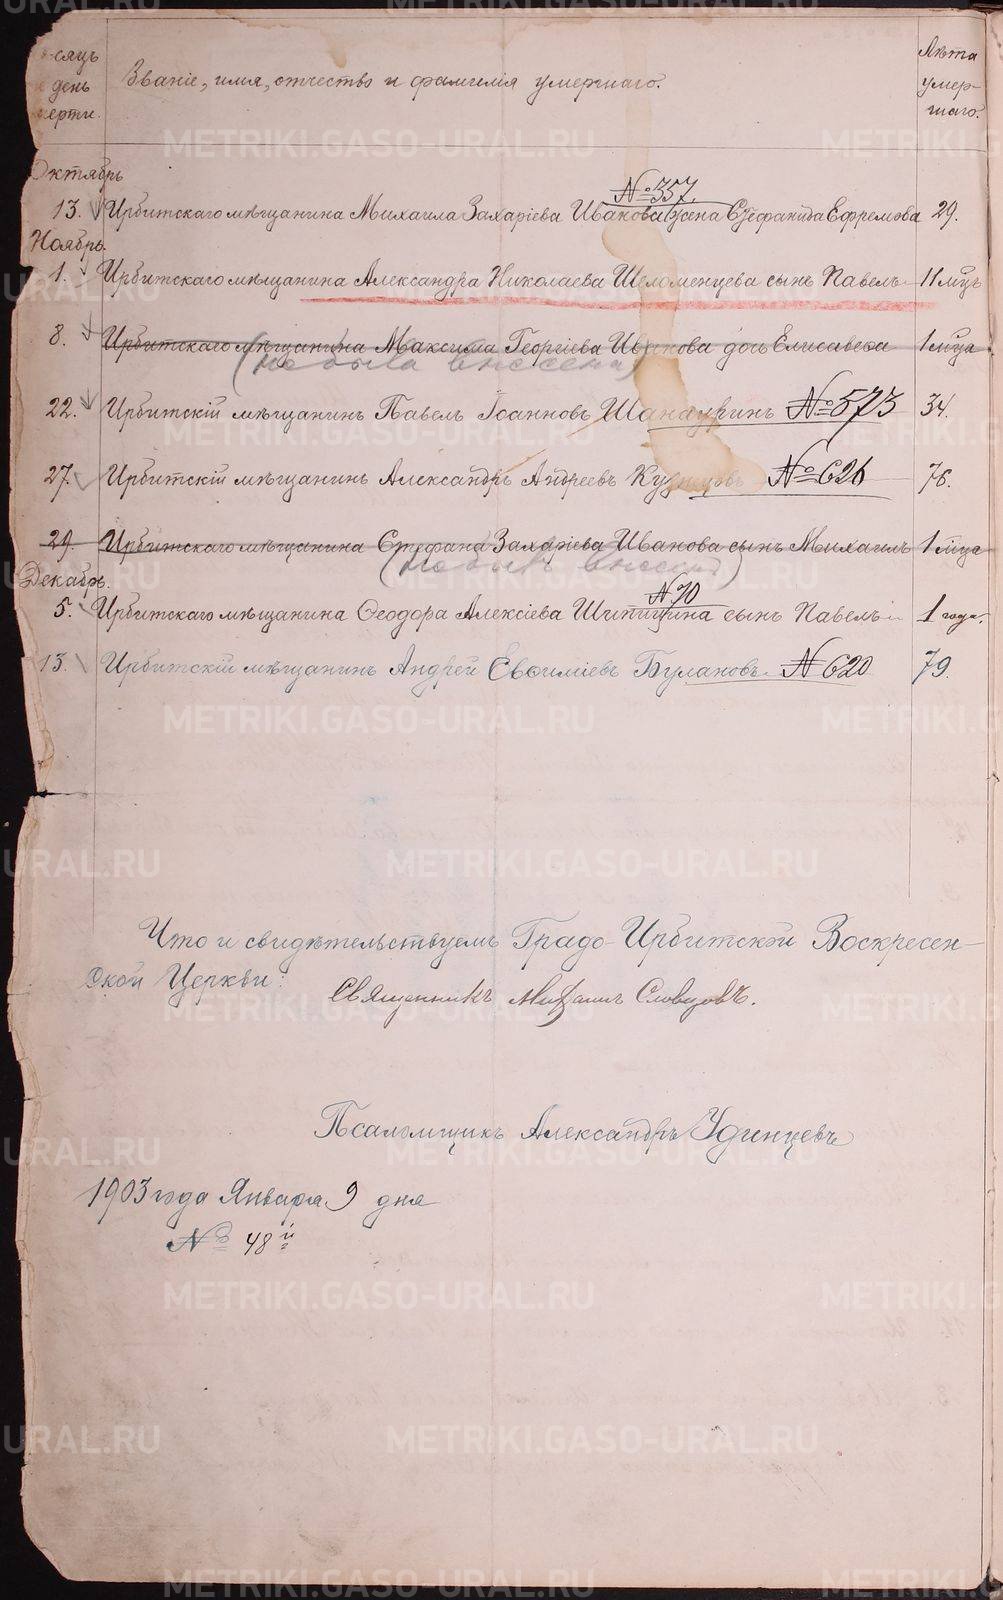 METRIKI.GASO-URAL.RU
сяцъ день ерти.
Званіе, имя, отчество и фамилія умершаго.
Лѣта умер-
шаго.
Октябрь
№ 357.
13. Ирбитскаго мѣщанина Михаила Захаріева Иванова жена Стефанида Ефремова 29.
Ноябрь.
1. Ирбитскаго мѣщанина Александра Николаева Шеломенцева сынъ Павелъ 11 мцъ
8. Ирбитскаго мѣщанина Максима Георгіева Иванова дочь Елисавета 1 мца
(не была внесена)
22. Ирбитскій мѣщанинъ Павелъ Іоанновъ Шанауринъ № 573 34.
27. Ирбитскій мѣщанинъ Александръ Андреевъ Кузнецовъ № 626 76.
29. Ирбитскаго мѣщанина Стефана Захаріева Иванова сынъ Михаилъ 1 мца
(не былъ внесенъ)
Декабрь.
№ 70
5. Ирбитскаго мѣщанина Ѳеодора Алексіева Шипицина сынъ Павелъ 1 года.
13. Ирбитскій мѣщанинъ Андрей Евѳиміевъ Булановъ. № 620 79.
Что и свидѣтельствуемъ Градо-Ирбитской Воскресен-
ской Церкви:
Священникъ Михаилъ Словцовъ.
Псаломщикъ Александръ Удинцевъ
1903 года Января 9 дня
№ 48й